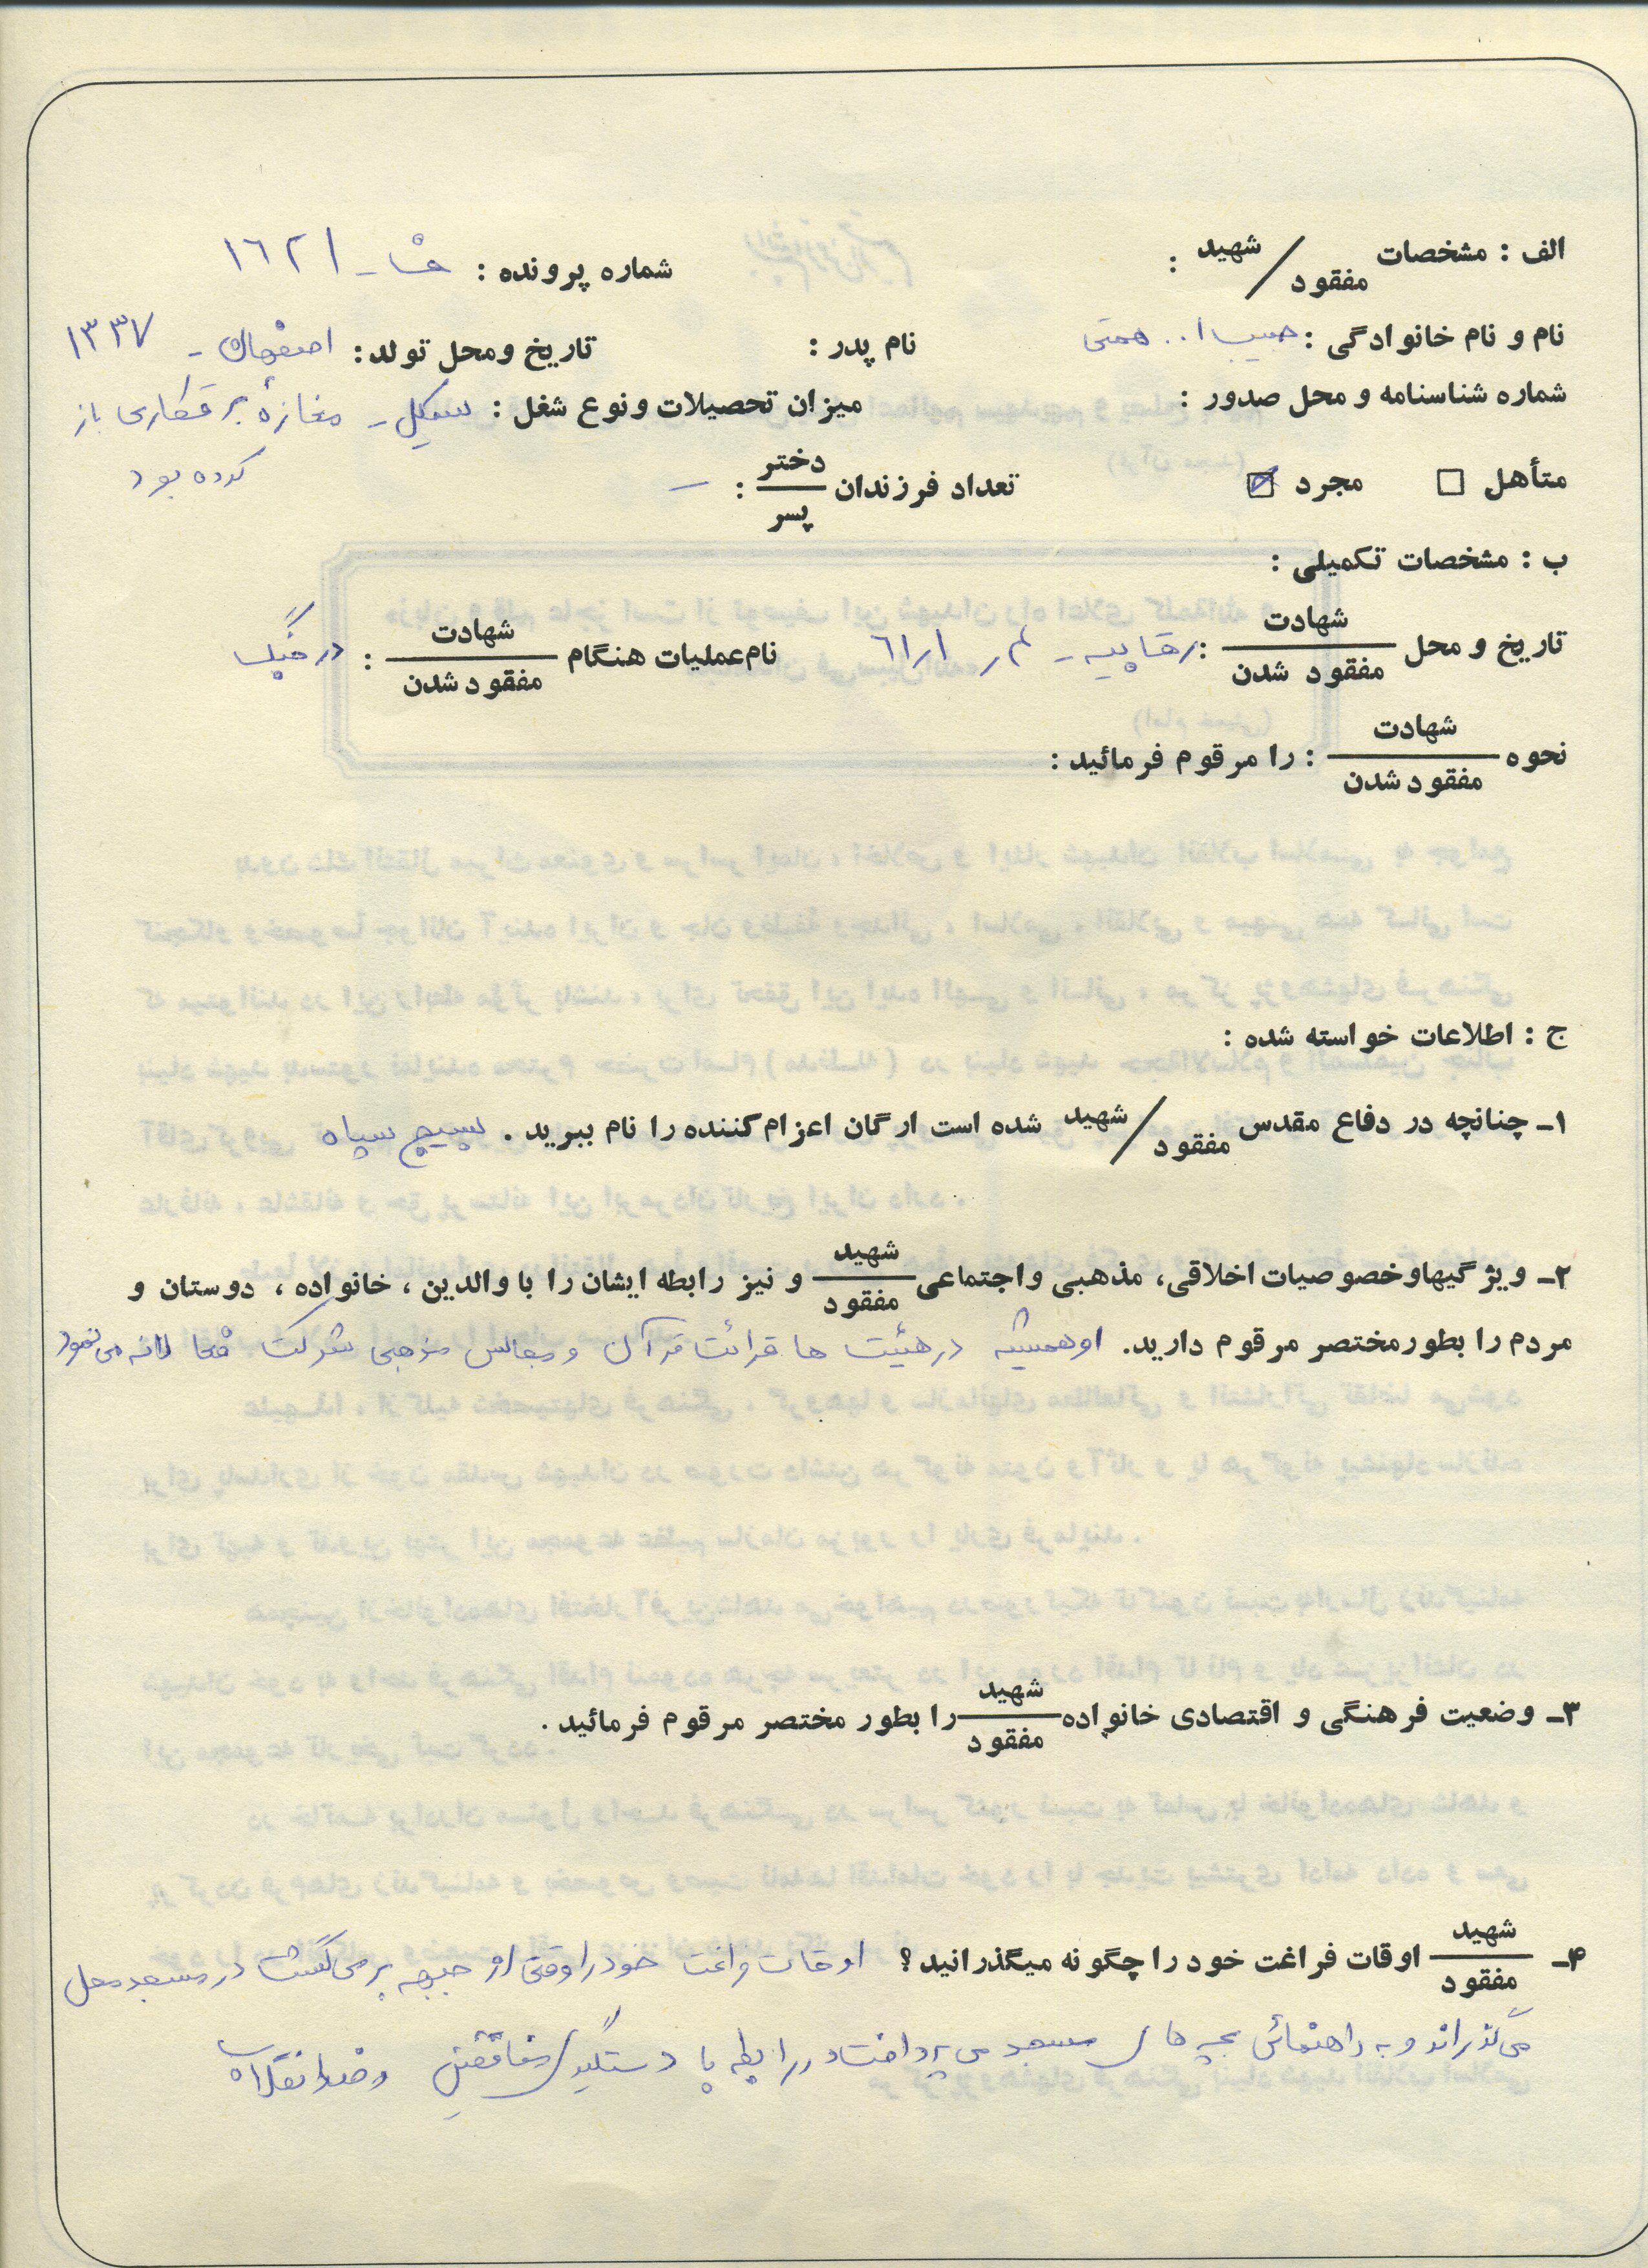 الف : مشخصات شهید / مفقود : شماره پرونده : ۱٦۲۱
نام و نام خانوادگی : حبیب ا.. همتی نام پدر : تاریخ ومحل تولد : اصفهان - ۱۳۳۷
شماره شناسنامه و محل صدور : میزان تحصیلات ونوع شغل : سیکل - مغازهٔ برقکاری باز
کرده بود
متأهل ☐ مجرد ☑ تعداد فرزندان دختر / پسر : —
ب : مشخصات تکمیلی :
تاریخ و محل شهادت / مفقود شدن : رقابیه - ۱ر۶۱ نام عملیات هنگام شهادت / مفقود شدن : در جنگ
نحوه شهادت / مفقود شدن : را مرقوم فرمائید :
ج : اطلاعات خواسته شده :
۱- چنانچه در دفاع مقدس شهید / مفقود شده است ارگان اعزام کننده را نام ببرید . بسیج سپاه
۲- ویژگیها و خصوصیات اخلاقی، مذهبی واجتماعی شهید / مفقود و نیز رابطه ایشان را با والدین ، خانواده ، دوستان و
مردم را بطور مختصر مرقوم دارید. او همیشه در هیئت ها قرائت قرآن و مجالس مذهبی شرکت فعا لانه می نمود
۳- وضعیت فرهنگی و اقتصادی خانواده شهید / مفقود را بطور مختصر مرقوم فرمائید .
۴- شهید / مفقود اوقات فراغت خود را چگونه میگذرانید؟ اوقات فراغت خود را وقتی از جبهه بر می گشت در مسجد محل
می گذراند و به راهنمائی بچه های مسجد می پرداخت و در رابطه با دستگیری منافقین و ضد انقلاب